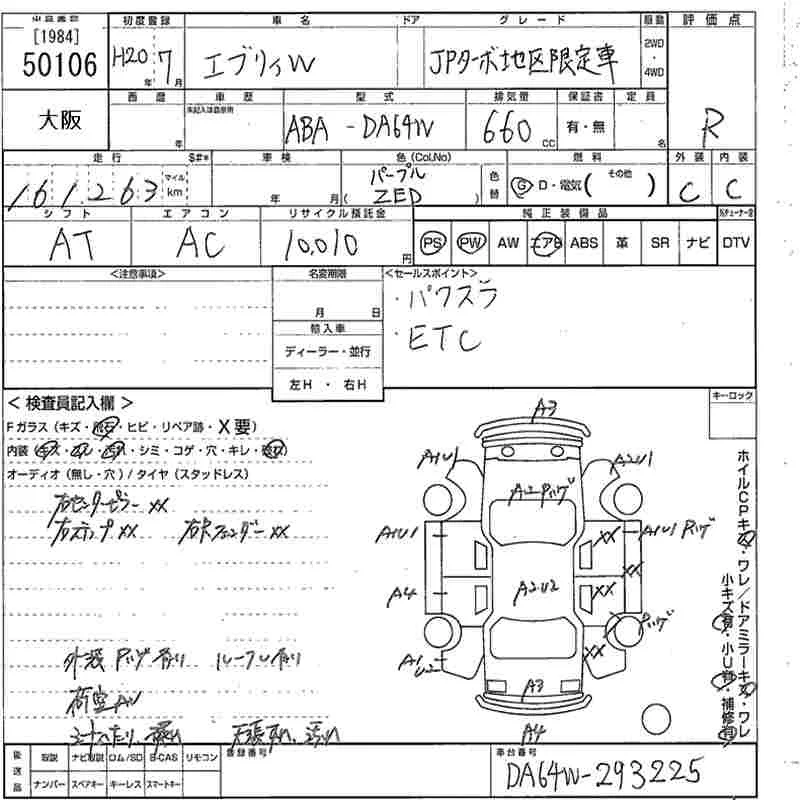 [1984]
50106
初度登録 車名 ドア グレード 駆動 評価点
H20年 7月 エブリィW JPターボ地区限定車 2WD・4WD R
大阪
西暦 車歴 型式 排気量 保証書 定員
年 未記入は自家用 ABA-DA64W 660cc 有・無 名
走行 S#* 車検 色(Col,No) 燃料 外装 内装
161,263 マイル km 年 月 パープル (ZED) 色替 G D・電気( その他 ) C C
シフト エアコン リサイクル預託金 純正装備品
AT AC 10,010円 PS PW AW エアB ABS 革 SR ナビ DTV
<注意事項> 名変期限 <セールスポイント>
月 日 ・パワスラ
輸入車 ・ETC
ディーラー・並行
左H・右H
<検査員記入欄> キーロック
Fガラス(キズ・飛石・ヒビ・リペア跡・X要)
内装(キズ・・汚れ・シミ・コゲ・穴・キレ・)
オーディオ(無し・穴)/タイヤ(スタッドレス)
右センターピラー XX
右ステップ XX 右フェンダー XX
外装 有り ルーフU有り
荷室AU
シートへたり 天張 汚れ
A3
A1U1 A2U1
A1U1 XX A1U1
A4 A2U2 XX XX
A1U2 XX
A3
A4
ホイルCPキズ・ワレ/ドアミラーキズ・ワレ
小キズ有・小U有・補修有
後送品 取説 ナビ取説 ロム/SD B-CAS リモコン 登録番号 車台番号
ナンバー スペアキー キーレス スマートキー DA64W-293225